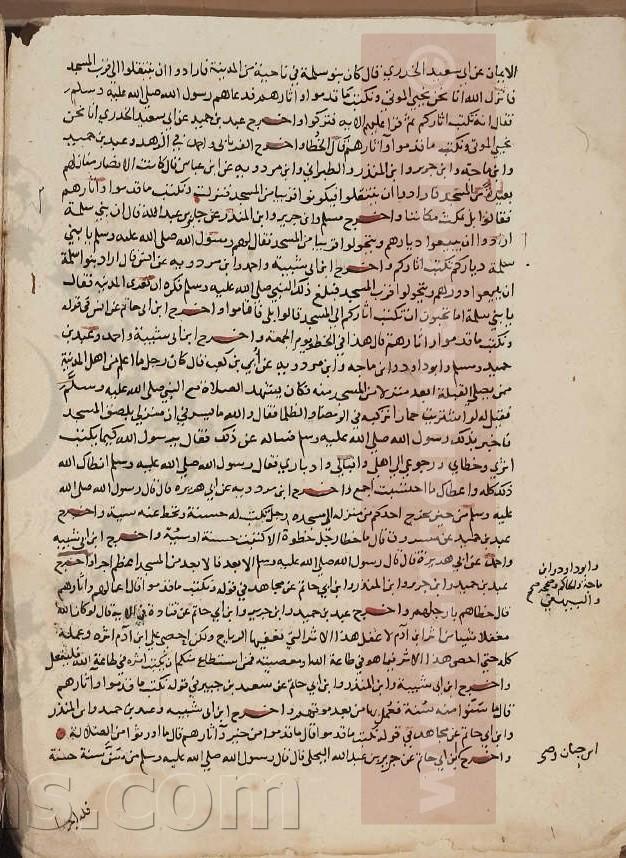 الايمان عن ابى سعيد الخدري قال كان بنو سلمة في ناحية من المدينة فارادوا ان ينتقلوا الى قرب المسجد
فانزل الله انا نحن نحيى الموتى ونكتب ما قدموا واثارهم فدعاهم رسول الله صلى الله عليه وسلم
فقال انه تكتب اثاركم ثم قرا عليهم الاية فتركوا واخرج عبد بن حميد عن ابى سعيد الخدري انا نحن
نحيى الموتى ونكتب ما قدموا واثارهم قال الخطا واخرج الفريابى واحمد في الزهد وعبد بن حميد
وابن ماجه وابن جرير وابن المنذر والطبرانى وابن مردويه عن ابن عباس قال كانت الانصار منازلهم
بعيدة من المسجد فارادوا ان ينتقلوا فيكونوا قريبا من المسجد فنزلت ونكتب ما قدموا واثارهم
فقالوا بل نمكث مكاننا واخرج مسلم وابن جرير وابن المنذر عن جابر بن عبد الله قال ان بني سلمة
ارادوا ان يبيعوا ديارهم ويتحولوا قريبا من المسجد فقال لهم رسول الله صلى الله عليه وسلم يا بني
سلمة دياركم تكتب اثاركم واخرج ابن ابى شيبة واحمد وابن مردويه عن انس قال اراد بنو سلمة
ان يبيعوا دورهم ويتحولوا قرب المسجد فبلغ ذلك النبي صلى الله عليه وسلم فكره ان تعرى المدينة فقال
يا بني سلمة اما تحبون ان تكتب اثاركم الى المسجد قالوا بلى فاقاموا واخرج ابن ابى حاتم عن انس في قوله
ونكتب ما قدموا واثارهم قال هذا في الخطو يوم الجمعة واخرج ابن ابى شيبة واحمد وعبد بن
حميد ومسلم وابو داود وابن ماجه وابن مردويه عن أبي بن كعب قال كان رجل ما اعلم من اهل المدينة
ممن يصلي القبلة ابعد منزلا من المسجد منه فكان يشهد الصلاة مع النبي صلى الله عليه وسلم
فقيل له لو اشتريت حمارا تركبه في الرمضا والظلما فقال والله ما يسرني ان منزلي بلصق المسجد
فاخبر بذلك رسول الله صلى الله عليه وسلم فساله عن ذلك فقال يرسول الله كيما يكتب
اثري وخطاي ورجوعي الى اهلى واقبالي وادباري فقال رسول الله صلى الله عليه وسلم انطاك الله
ذلك كله واعطاك ما احتسبت اجمع واخرج ابن مردويه عن ابى هريرة قال قال رسول الله صلى الله
عليه وسلم من حين يخرج احدكم من منزله الى مسجده رجل تكتب له حسنة وتحط عنه سية واخرج
عبد بن حميد عن مسروق قال ما خطا رجل خطوة الا كتبت حسنة او سيئة واخرج ابن ابى شيبه
واحمد عن ابى هريرة قال قال رسول الله صلى الله عليه وسلم الابعد فالابعد من المسجد اعظم اجرا واخرج
عبد بن حميد وابن جرير وابن المنذر وابن ابى حاتم عن مجاهد في قوله ونكتب ما قدموا قال اعمالهم واثارهم
قال خطاهم بارجلهم واخرج عبد بن حميد وابن جرير وابن ابى حاتم عن قتادة في الاية قال لو كان الله
مغفلا شيا من اثر ابن ادم لاغفل هذا الاثر التي تعفيها الرياح ولكن احصى على ابن ادم اثره وعمله
كله حتى احصى هذا الاثر فيما هو في طاعة الله ومعصيته فمن استطاع منكم ان يكتب اثره في طاعة الله فليفعل
واخرج ابن ابى شيبة وابن المنذر وابن ابى حاتم عن سعيد بن جبير في قوله ونكتب ما قدموا واثارهم
قال ما سنوا من سنة فعمل بها من بعد موتهم واخرج ابن ابى شيبه وعبد بن حميد وابن المنذر
وابن ابى حاتم عن مجاهد في قوله نكتب ما قدموا قال ما قدموا من خير واثارهم قال ما اورثوا من الضلالة
واخرج ابن ابى حاتم عن جرير بن عبد الله البجلى قال قال رسول الله صلى الله عليه وسلم من سن سنة حسنة
وابو داود وابن
ماجة والحاكم وصححه
والبيهقي
فله اجرها
ns.com